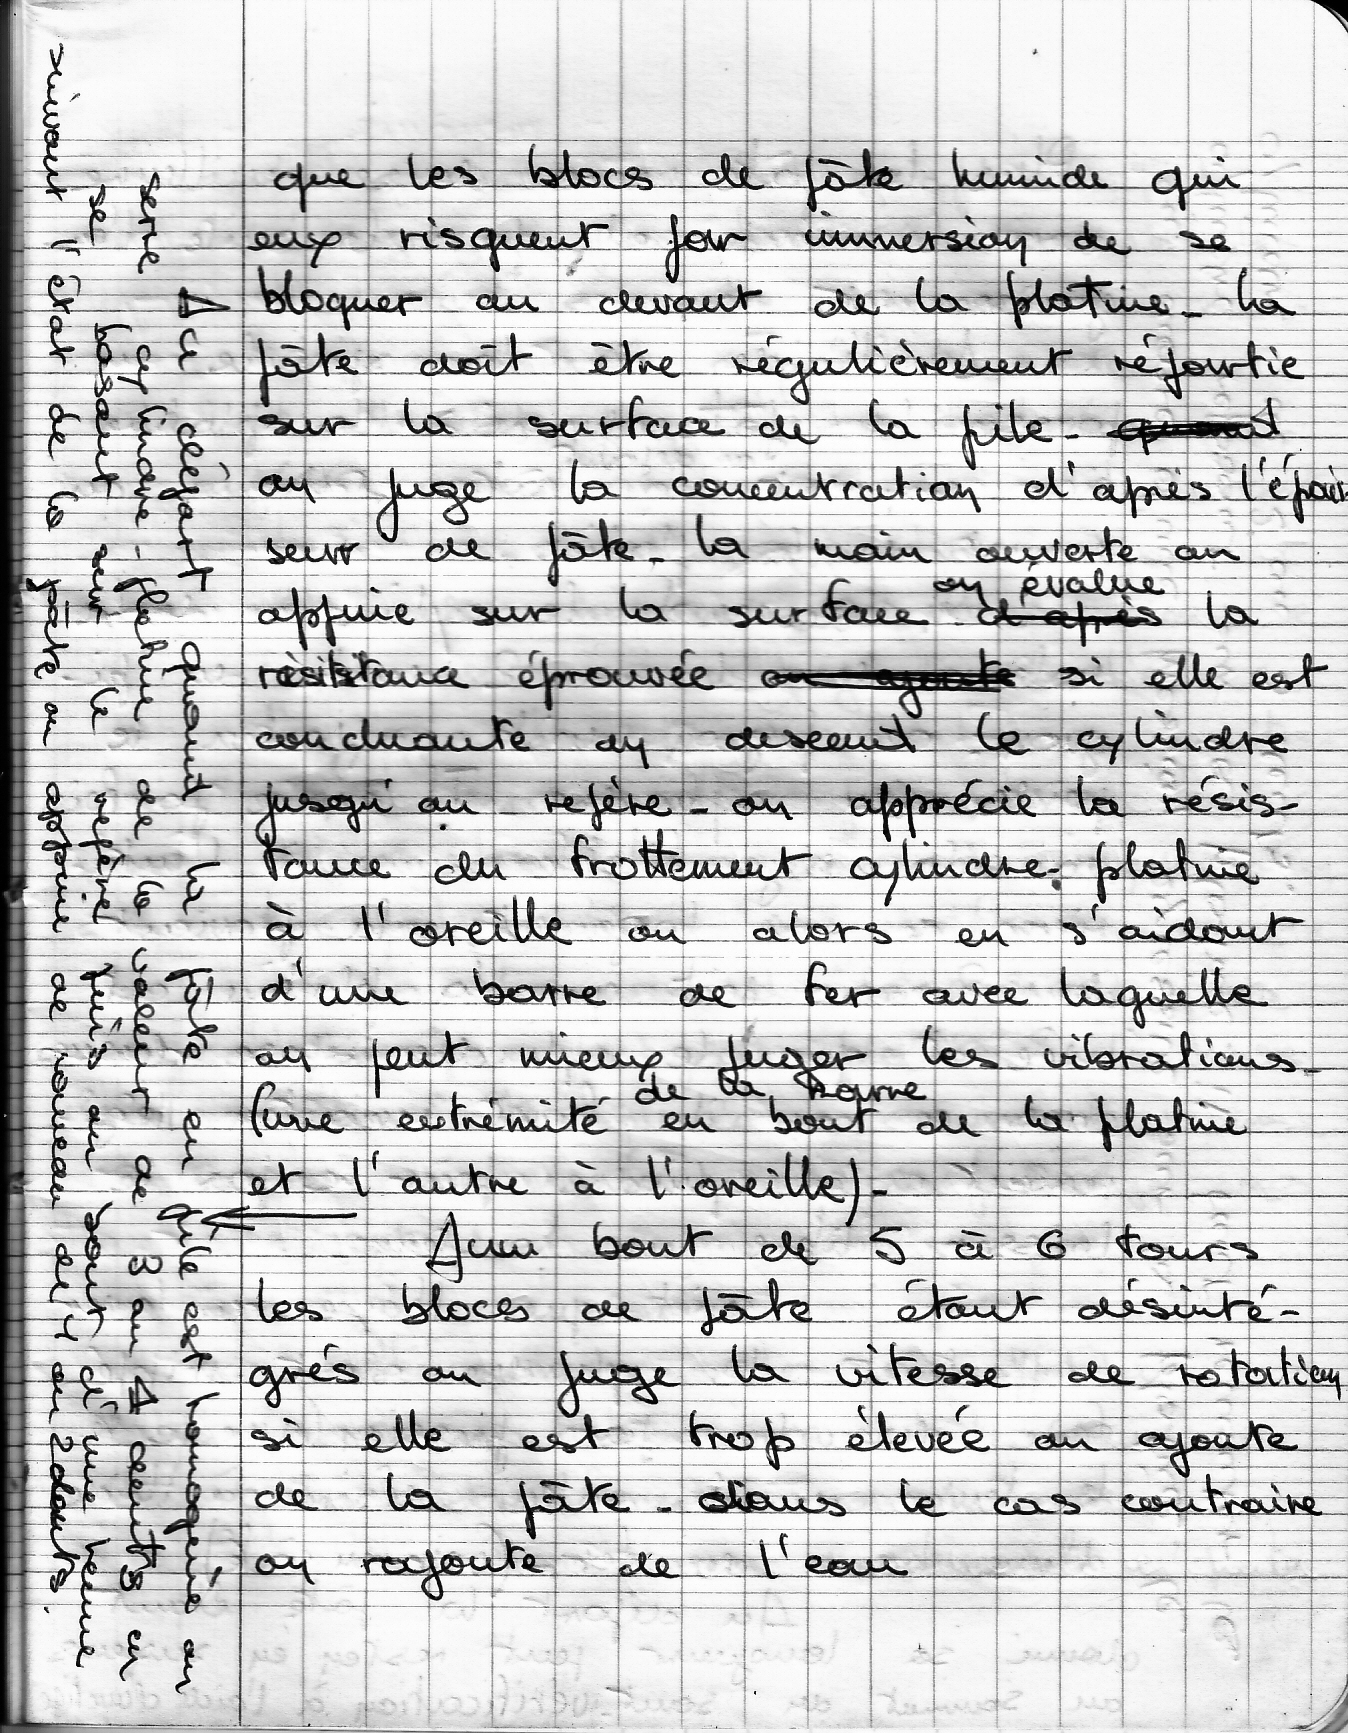 que les blocs de pâte humide qui
eux risquent par immersion de se
bloquer au devant de la platine. La
pâte doit être régulièrement répartie
sur la surface de la pile. quand
on juge la concentration d'après l'épais
seur de pâte. la main ouverte on
appuie sur la surface d'après on évalue la
résistance éprouvée on ajoute si elle est
concluante on descend le cylindre
jusqu'au repère - on apprécie la résis-
tance du frottement cylindre - platine
à l'oreille ou alors en s'aidant
d'une barre de fer avec laquelle
on peut mieux juger les vibrations.
(une extrémité de la barre en bout de la platine
et l'autre à l'oreille) -
Auu bout de 5 à 6 tours
les blocs de pâte étant désinté-
grés on juge la vitesse de rotation
si elle est trop élevée on ajoute
de la pâte - dans le cas contraire
on rajoute de l'eau
Au départ quand la pâte en pile est homogène on
serre cylindre - platine de la valeur de 3 ou 4 dents en
se basant sur le repère puis au bout d'une heure
suivant l'état de la pâte on appuie de nouveau de 1 ou 2 dents.